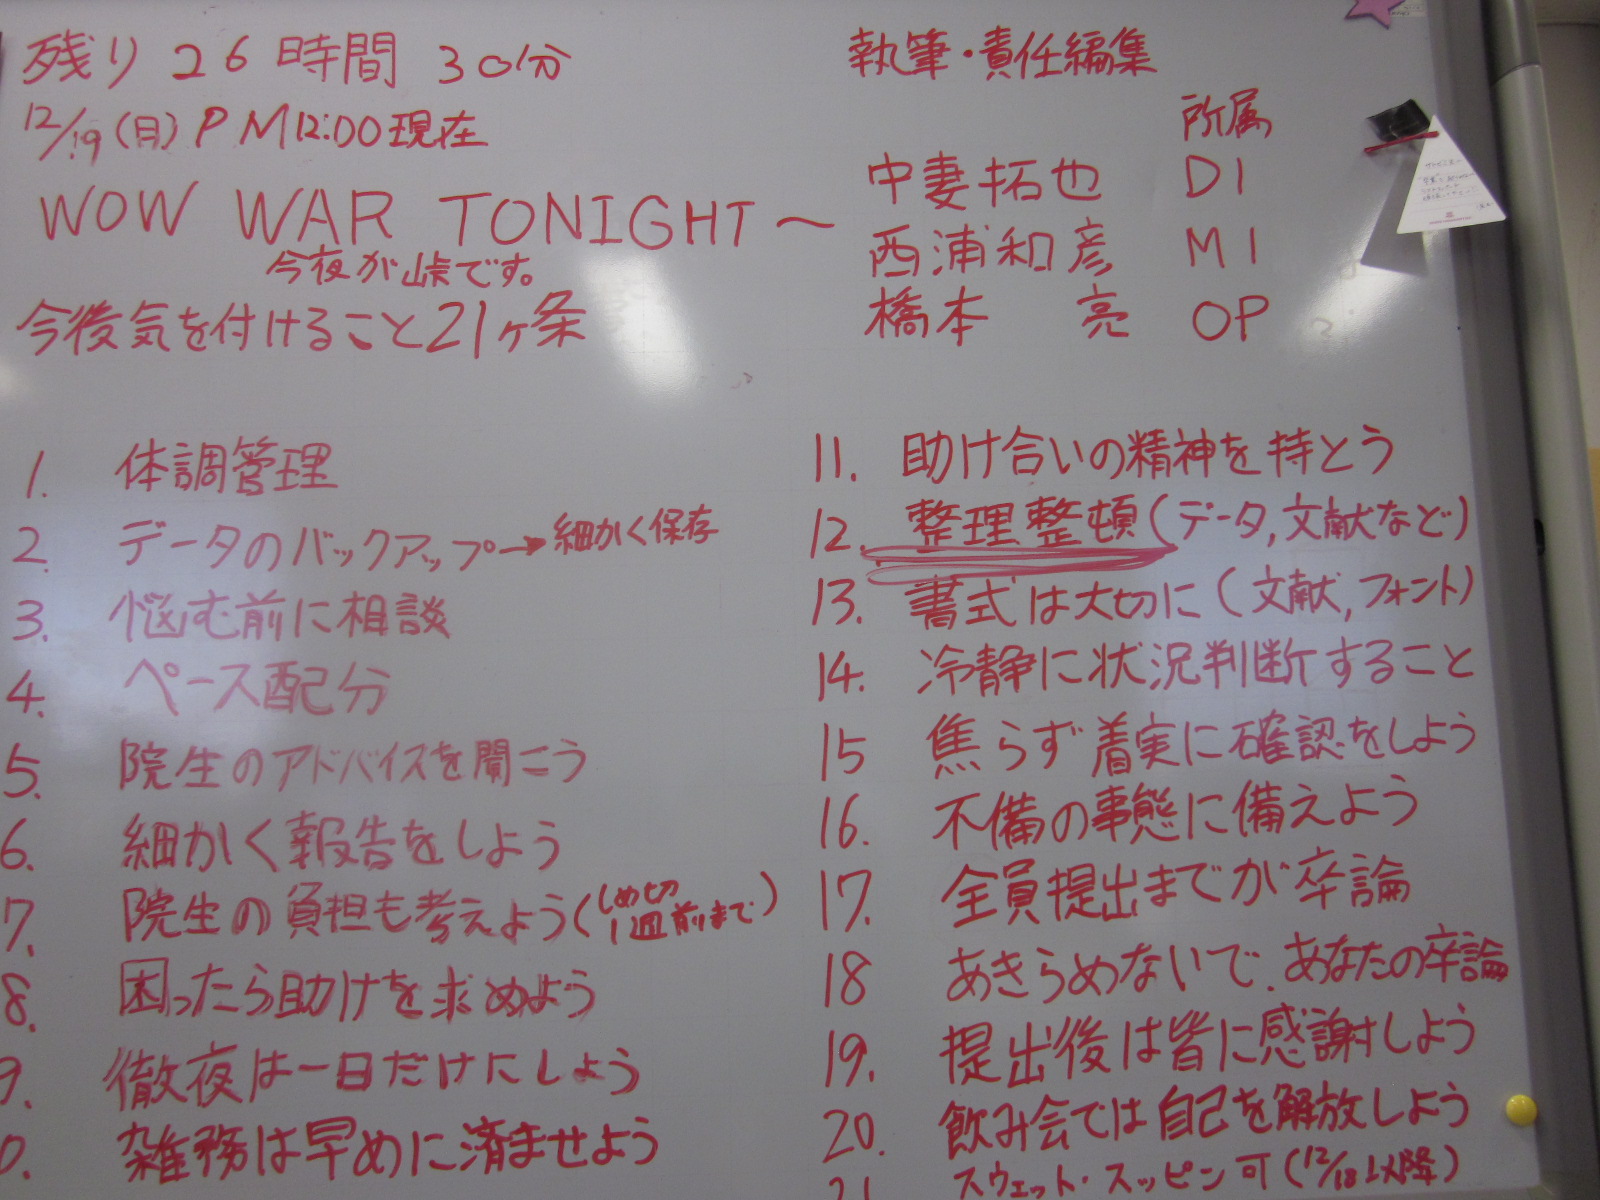 残り 26時間 30分
12/19(月)PM12:00現在
WOW WAR TONIGHT～
今夜が峠です。
今後気を付けること21ヶ条
執筆・責任編集
所属
中妻拓也 D1
西浦和彦 M1
橋本 亮 OP
1. 体調管理
2. データのバックアップ→細かく保存
3. 悩む前に相談
4. ペース配分
5. 院生のアドバイスを聞こう
6. 細かく報告をしよう
7. 院生の負担も考えよう(しめ切1週前まで)
8. 困ったら助けを求めよう
9. 徹夜は一日だけにしよう
0. 雑務は早めに済ませよう
11. 助け合いの精神を持とう
12. 整理整頓(データ,文献など)
13. 書式は大切に(文献,フォント)
14. 冷静に状況判断すること
15 焦らず着実に確認をしよう
16. 不備の事態に備えよう
17. 全員提出までが卒論
18 あきらめないで.あなたの卒論
19. 提出後は皆に感謝しよう
20. 飲み会では自己を解放しよう
21 スウェット・スッピン可(12/18以降)